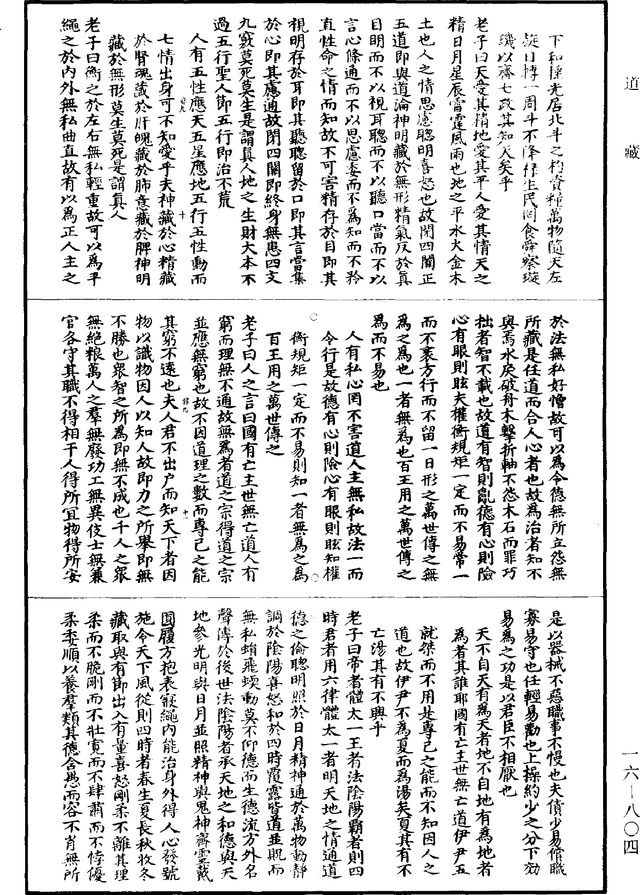 道藏
下和揉光居北斗之杓貴糧萬物隨天左
旋日轉一周斗不降作生民罔食舜察璇
璣以齊七政其知天矣乎
老子曰天受其精地愛其平人愛其情天之
精日月星辰雷霆風雨也地之平水火金木
土也人之情思慮聰明喜怒也故閉四關正
五道即與道淪神明藏於無形精氣反於真
目明而不以視耳聰而不以聽口當而不以
言心條通而不以思慮委而不為知而不矜
直性命之情而知故不可害精存於目即其
視明存於耳即其聽聰留於口即其言當集
於心即其慮通故閉四關即終身無患四支
九竅莫死莫生是謂真人地之生財大本不
過五行聖人節五行即治不荒
人有五性應天五星應地五行五性動而
七情出身可不知愛乎夫神藏於心精藏
於腎魂藏於肝魄藏於肺意藏於脾神明
藏於無形莫生莫死是謂真人
老子曰衡之於左右無私輕重故可以為平
繩之於內外無私曲直故有以為正人主之
於法無私好憎故可以為令德無所立怨無
所藏是任道而合人心者也故為治者知不
與焉水戾破舟木擊折軸不怨木石而罪巧
拙者智不載也故道有智則亂德有心則險
心有眼則眩夫權衡規矩一定而不易常一
而不衺方行而不留一日形之萬世傳之無
為之為也一者無為也百王用之萬世傳之
為而不易也
人有私心罔不害道人主無私故法一而
令行是故德有心則險心有眼則眩知權
衡規矩一定而不易則知一者無為之為
百王用之萬世傳之
老子曰人之言曰國有亡主世無亡道人有
窮而理無不通故無為者道之宗得道之宗
並應無窮也故不因道理之數而專己之能
其窮不遠也夫人君不出戶而知天下者因
物以識物因人以知人故即力之所舉即無
不勝也眾智之所為即無不成也千人之眾
無絕粮萬人之羣無廢功工無異伎士無兼
官各守其職不得相干人得所宜物得所安
是以器械不惡職事不慢也夫債少易償職
寡易守也任輕易勸也上操約少之分下効
易為之功是以君臣不相厭也
天不自天有為天者地不自地有為地者
為者其誰耶國有亡主世無亡道伊尹五
就桀而不用是專己之能而不知因人之
道也故伊尹不為夏而為湯矣夏其有不
亡湯其有不興乎
老子曰帝者體太一王者法陰陽霸者則四
時君者用六律體太一者明天地之情通道
德之倫聰明照於日月精神通於萬物動靜
調於陰陽喜怒和於四時覆露皆道並肶而
無私蜎飛蠕動莫不仰德而生德流方外名
聲傳於後世法陰陽者承天地之和德與天
地參光明與日月並照精神與鬼神齊靈戴
圓履方抱表寢繩內能治身外得人心發號
施令天下風從則四時者春生夏長秋收冬
藏取與有節出入有量喜怒剛柔不離其理
柔而不脆剛而不壯寬而不肆肅而不悖優
柔委順以養羣類其德含愚而容不肖無所
一六—八〇四